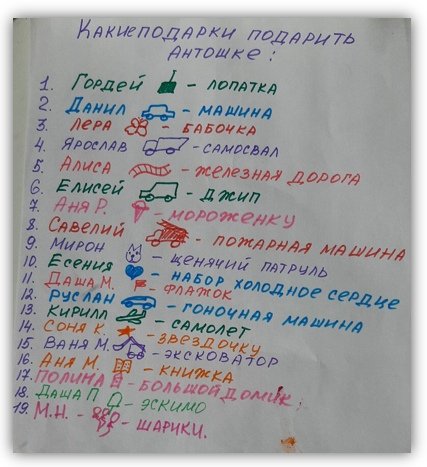 КАКИЕ ПОДАРКИ ПОДАРИТЬ
АНТОШКЕ:
1. ГОРДЕЙ - ЛОПАТКА
2. ДАНИЛ - МАШИНА
3. ЛЕРА - БАБОЧКА
4. ЯРОСЛАВ - САМОСВАЛ
5. АЛИСА - ЖЕЛЕЗНАЯ ДОРОГА
6. ЕЛИСЕЙ - ДЖИП
7. АНЯ Р. - МОРОЖЕНКУ
8. САВЕЛИЙ - ПОЖАРНАЯ МАШИНА
9. МИРОН - ЩЕНЯЧИЙ ПАТРУЛЬ
10. ЕСЕНИЯ - НАБОР ХОЛОДНОЕ СЕРДИЕ
11. ДАША М. - ФЛАЖОК
12. РУСЛАН - ГОНОЧНАЯ МАШИНА
13. КИРИЛЛ - САМОЛЕТ
14. СОНЯ К. - ЗВЕЗДОЧКУ
15. ВАНЯ М. - ЭКСКОВАТОР
16. АНЯ М. - КНИЖКА
17. ПОЛИНА - БОЛЬШОЙ ДОМИК
18. ДАША П. - ЭСКИМО
19. М.Н. - ШАРИКИ.